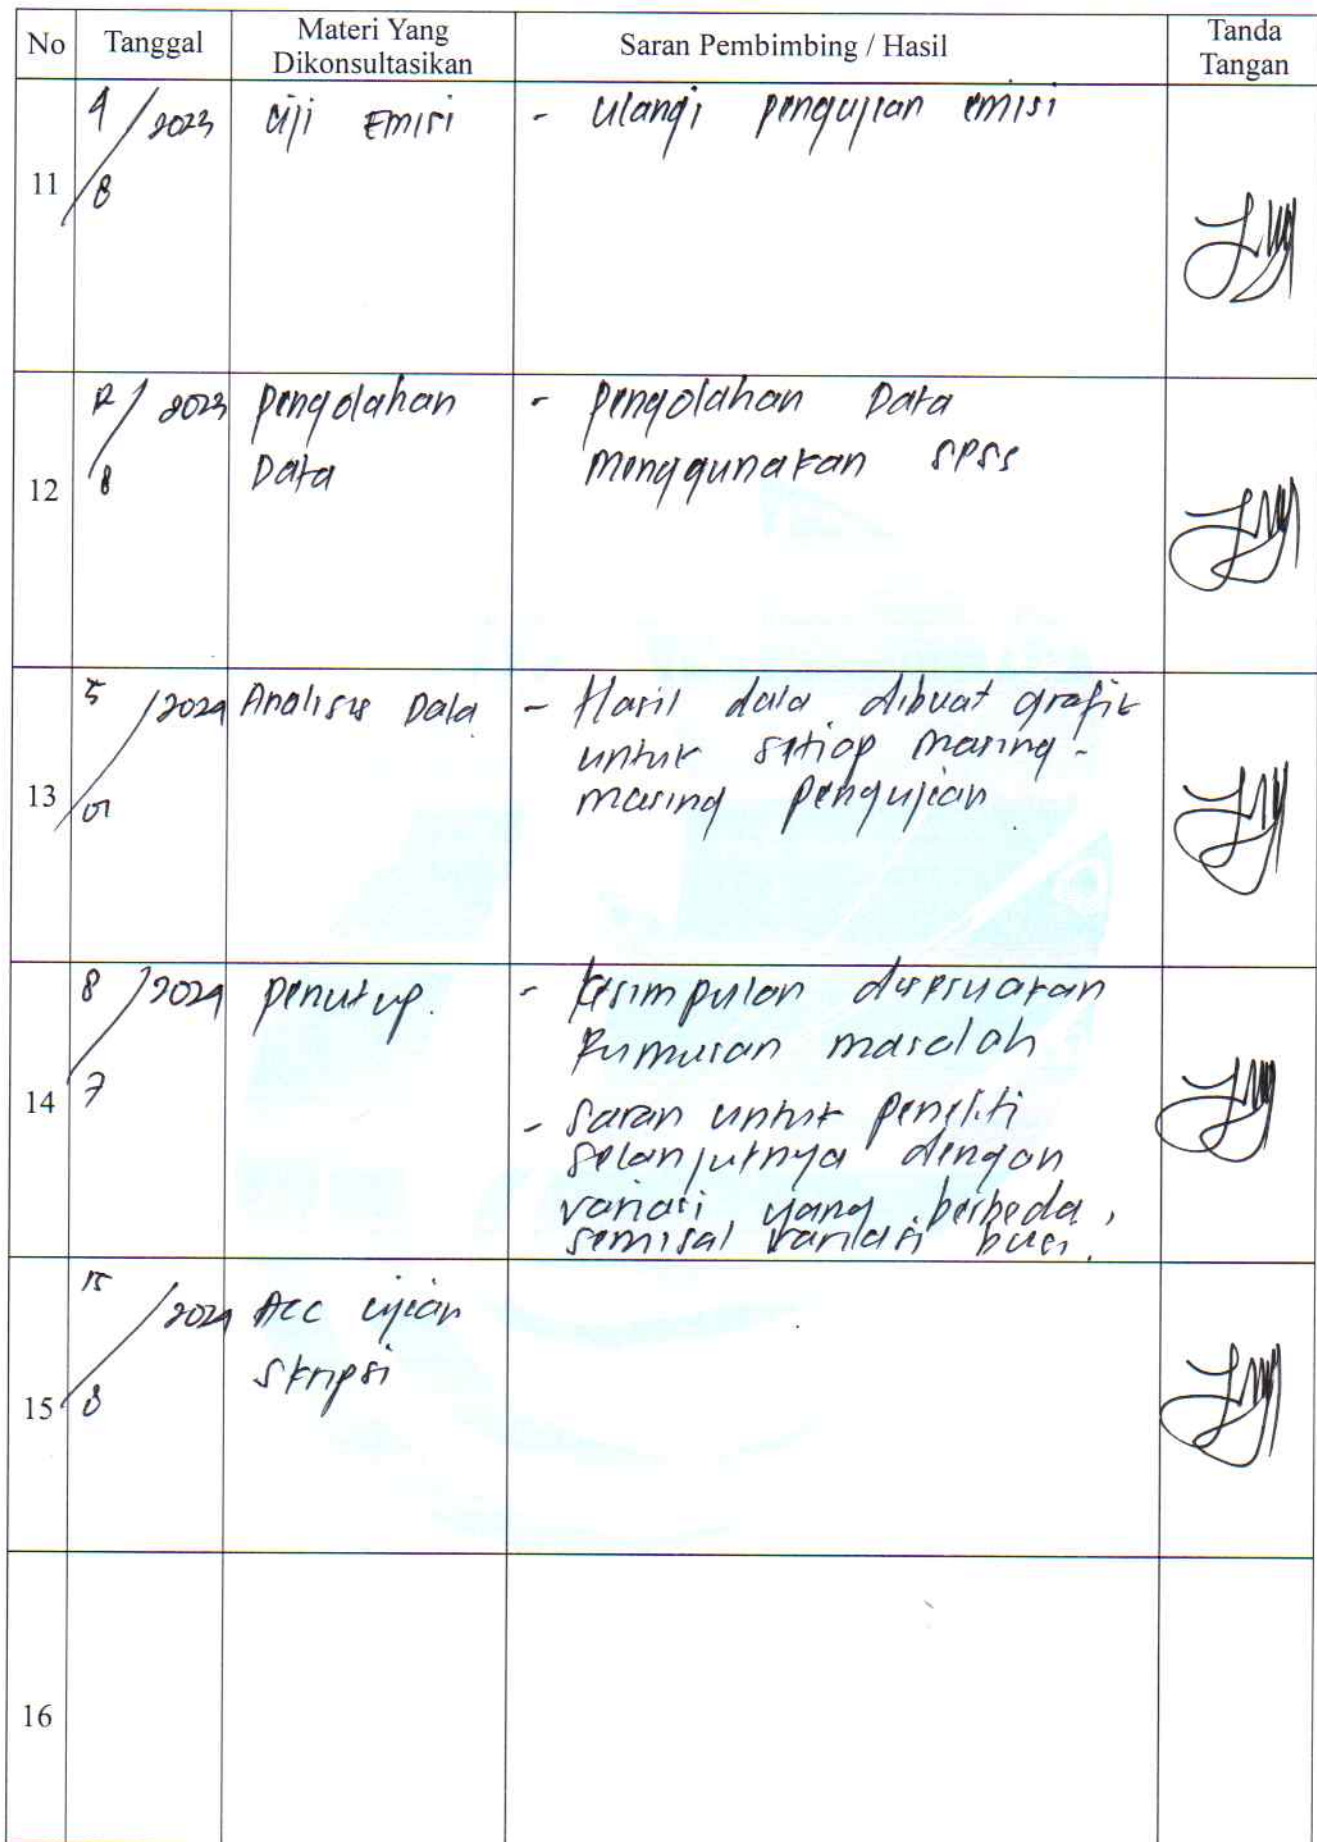 No Tanggal Materi Yang Dikonsultasikan Saran Pembimbing / Hasil Tanda Tangan
11 4/8 2023 Uji Emisi - Ulangi pengujian emisi
12 12/8 2023 pengolahan - pengolahan Data
Data menggunakan SPSS
13 5/01 2024 Analisis Data - Hasil data dibuat grafik
untuk setiap masing-
masing pengujian
14 8/7 2024 penutup. - kesimpulan disesuakan
Rumusan masalah
- saran untuk peneliti
selanjutnya dengan
variasi yang berbeda,
semisal variasi busi.
15 15/8 2024 Acc ujian
skripsi
16